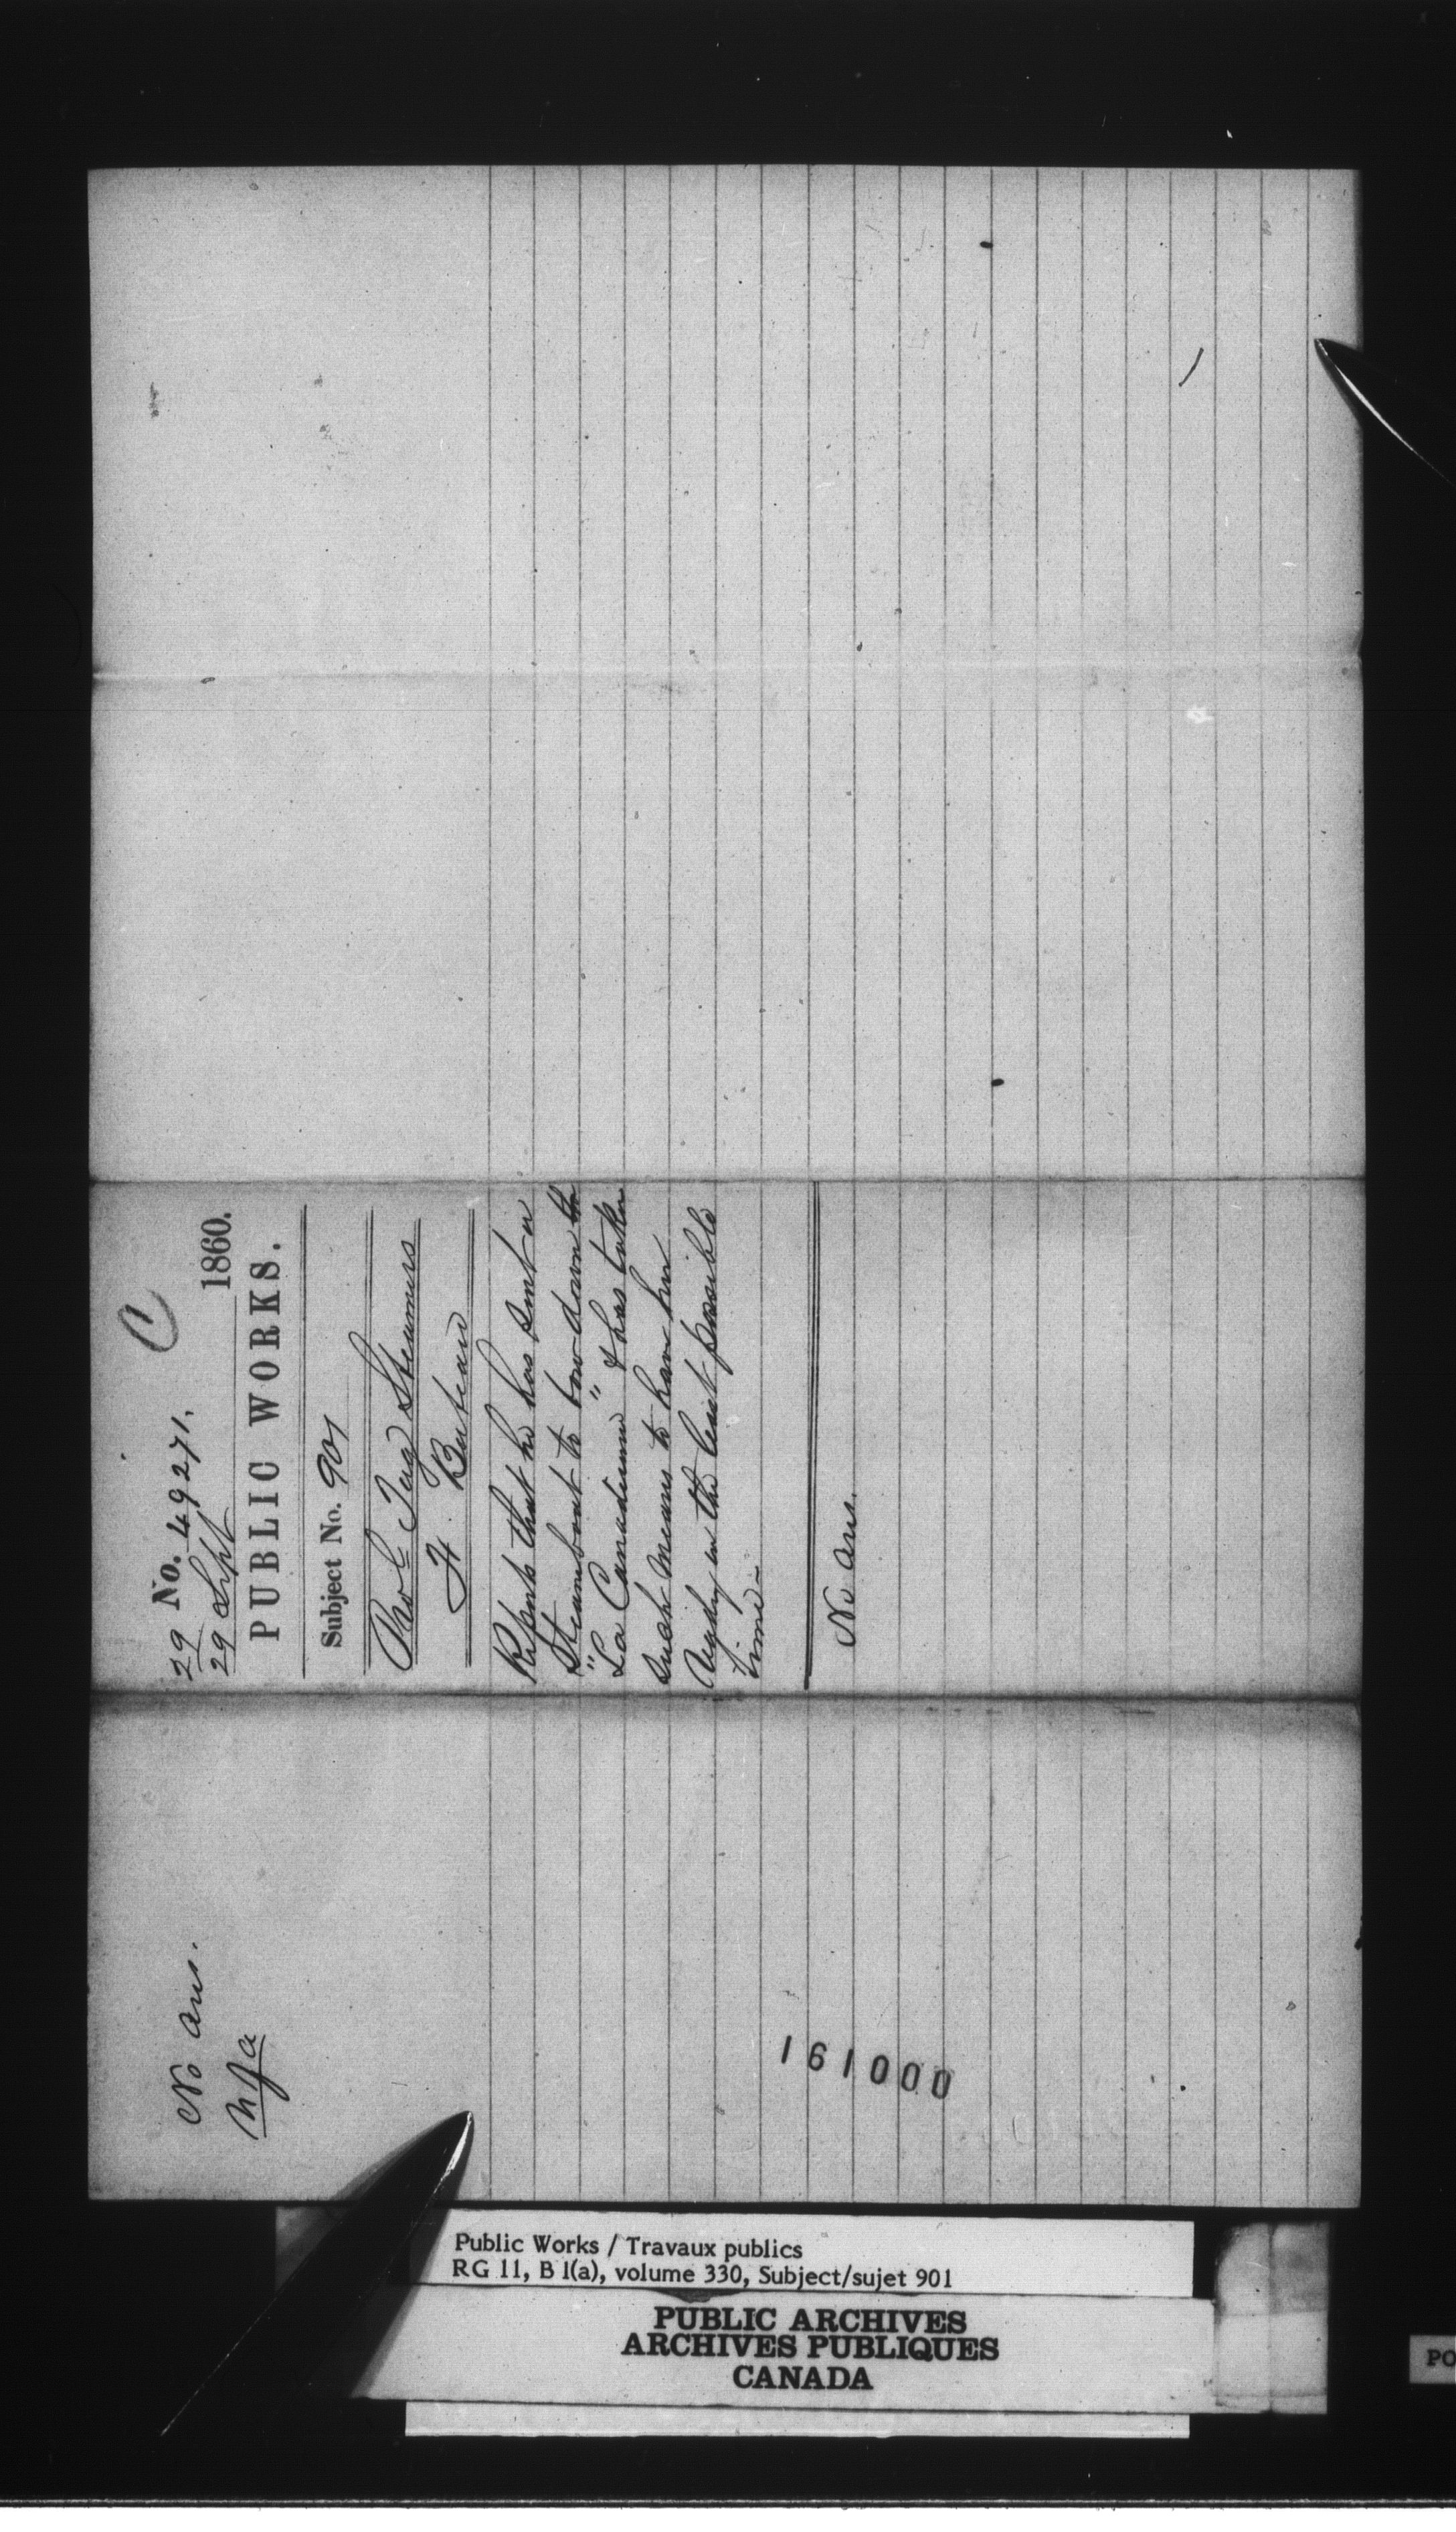 C
29 No. 49271.
29 Sept 1860.
PUBLIC WORKS.
Subject No. 901
Provl Tug Steamers
F. Buteau
Reports that he has sent a
Steamboat to tow down the
"La Canadienne" & has taken
such means to have her
ready in the least possible
time -
No ans.
No ans.
161000
Public Works / Travaux publics
RG 11, B 1(a), volume 330, Subject/sujet 901
PUBLIC ARCHIVES
ARCHIVES PUBLIQUES
CANADA
PO